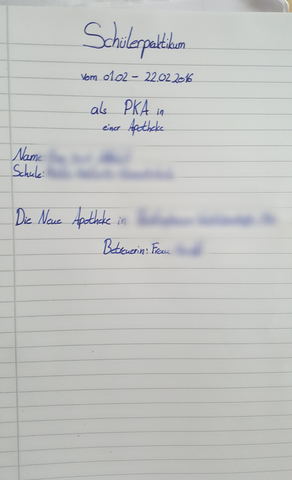 Schülerpraktikum
vom 01.02 - 22.02.2016
als PKA in
einer Apotheke
Name:
Schule:
Die Neue Apotheke in
Betreuerin: Frau